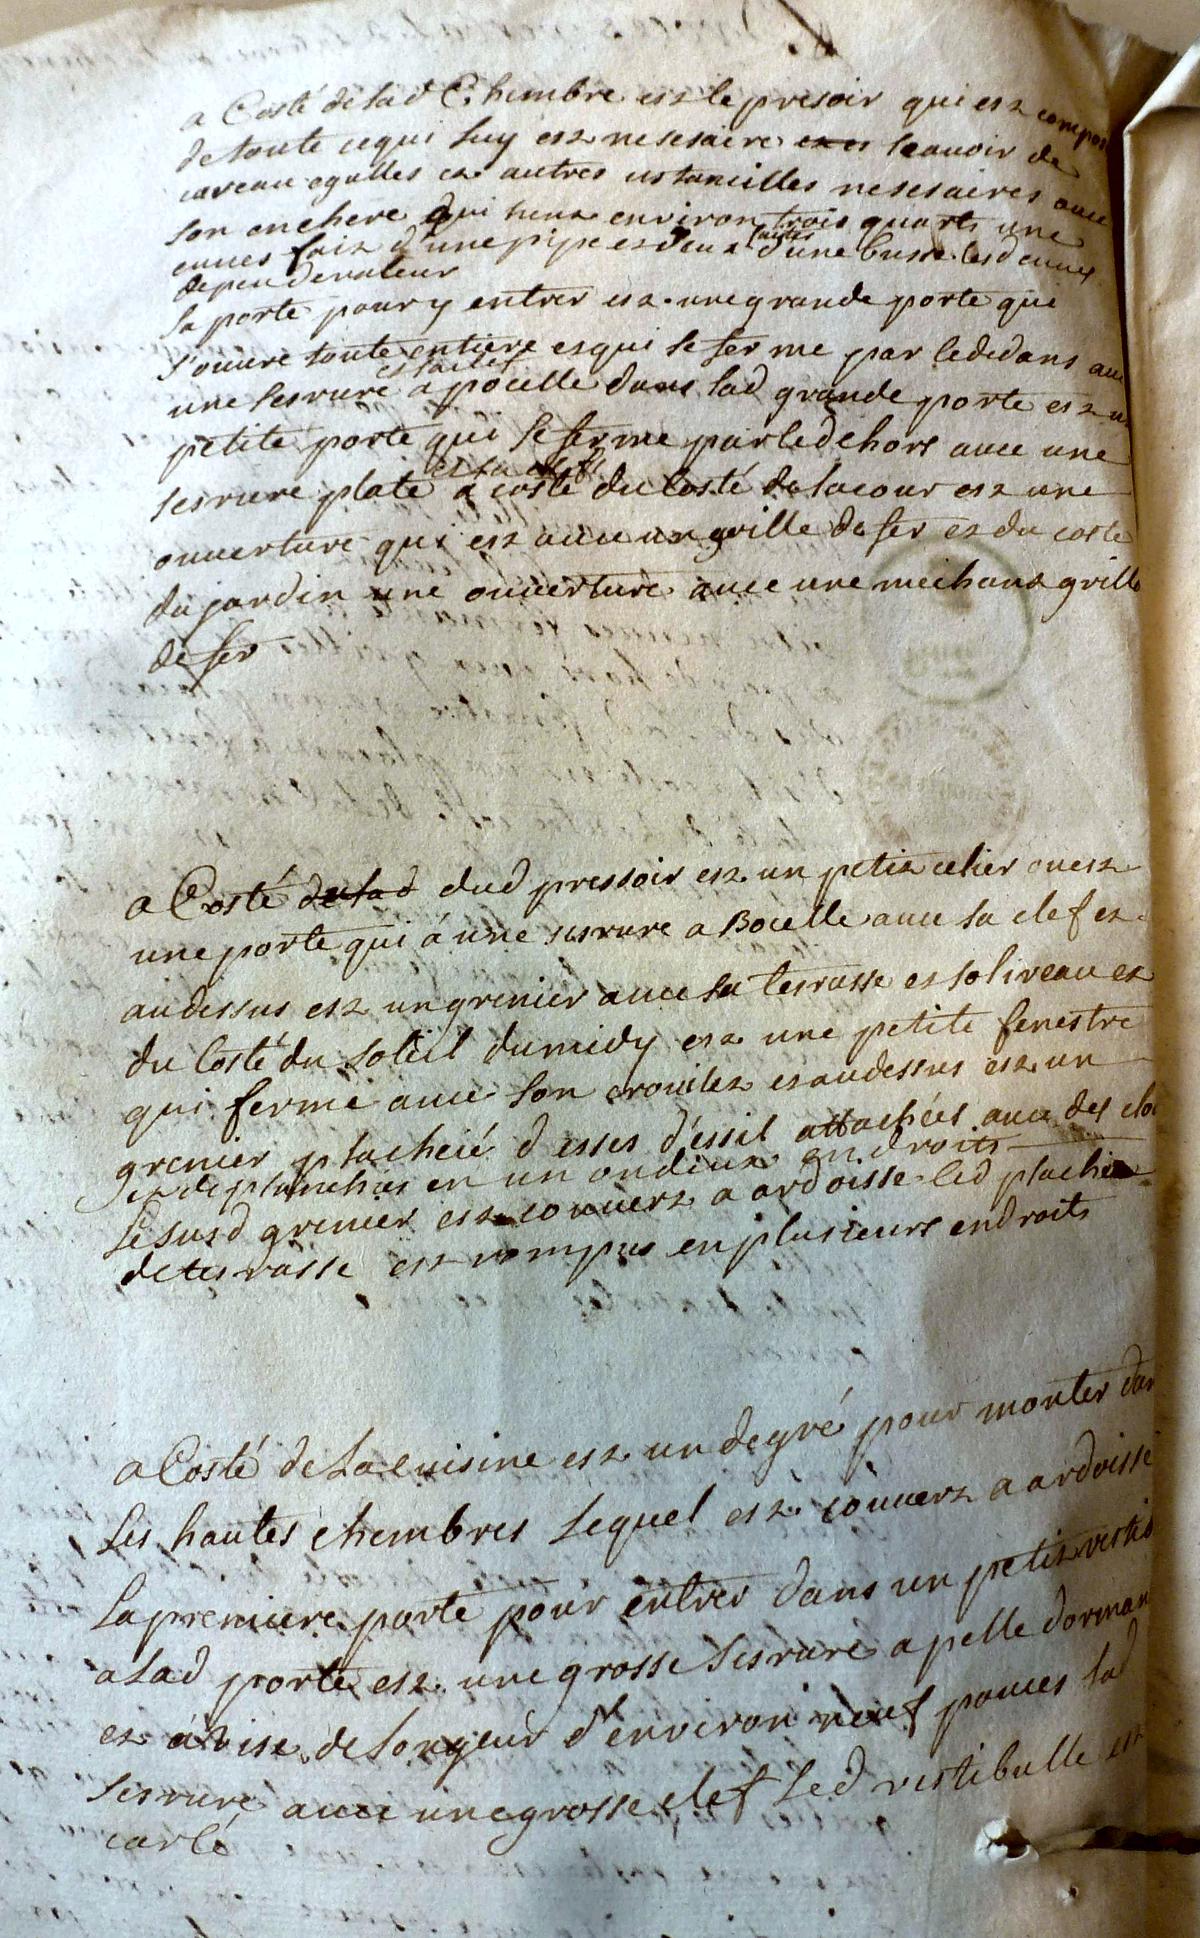 a Costé de lad Chembre est le presoir qui est compos
de toute cequi luy est nesesaire scauoir de
careau egulles et autres ustancilles nesesaires auec
son anchere qui tient environ trois quarts une
cuues fait d'une pipe et deux faites d'une busse lesd cuues
de peu de valeur
la porte pour y entrer est une grande porte qui
s'ouure toute entiere et qui se ferme par le dedans auec
une serrure et sa clef a pocelle dans lad grande porte est u
petite porte qui se ferme par le dehors auec une
serrure plate et sa clef a costé du Costé de la cour est une
ouuerture qui est auec un grille de fer et du coste
du jardin une ouuerture auec une mechant grille
de fer
a Costé de lad dud pressoir est un petit celier ou est
une porte qui á une serrure a Bocelle auec sa clef et
au dessus est un grenier auec sa terrasse et soliveau et
du Costé du soleil du midy est une petite fenestre
qui ferme auec son crouilet et au dessus est un
grenier placheié d'esses d'essil attachées auec des clou
et de planches en un ou deux endroits
Le susd grenier est couuert a ardoisse led plachei
de terrasse est rompus en plusieurs endroits
a Costé de La cuisine est un degré pour monter dan
Les hautes chembres Lequel est couuert a ardoisse
La premiere porte pour entrer dans un petit vestib
a Lad porte est une grosse serrure a pelle dorman
et á vise de Longeur d'environ neuf pouces lad
serrure auec une grosse clef Led vestibulle est
carlé